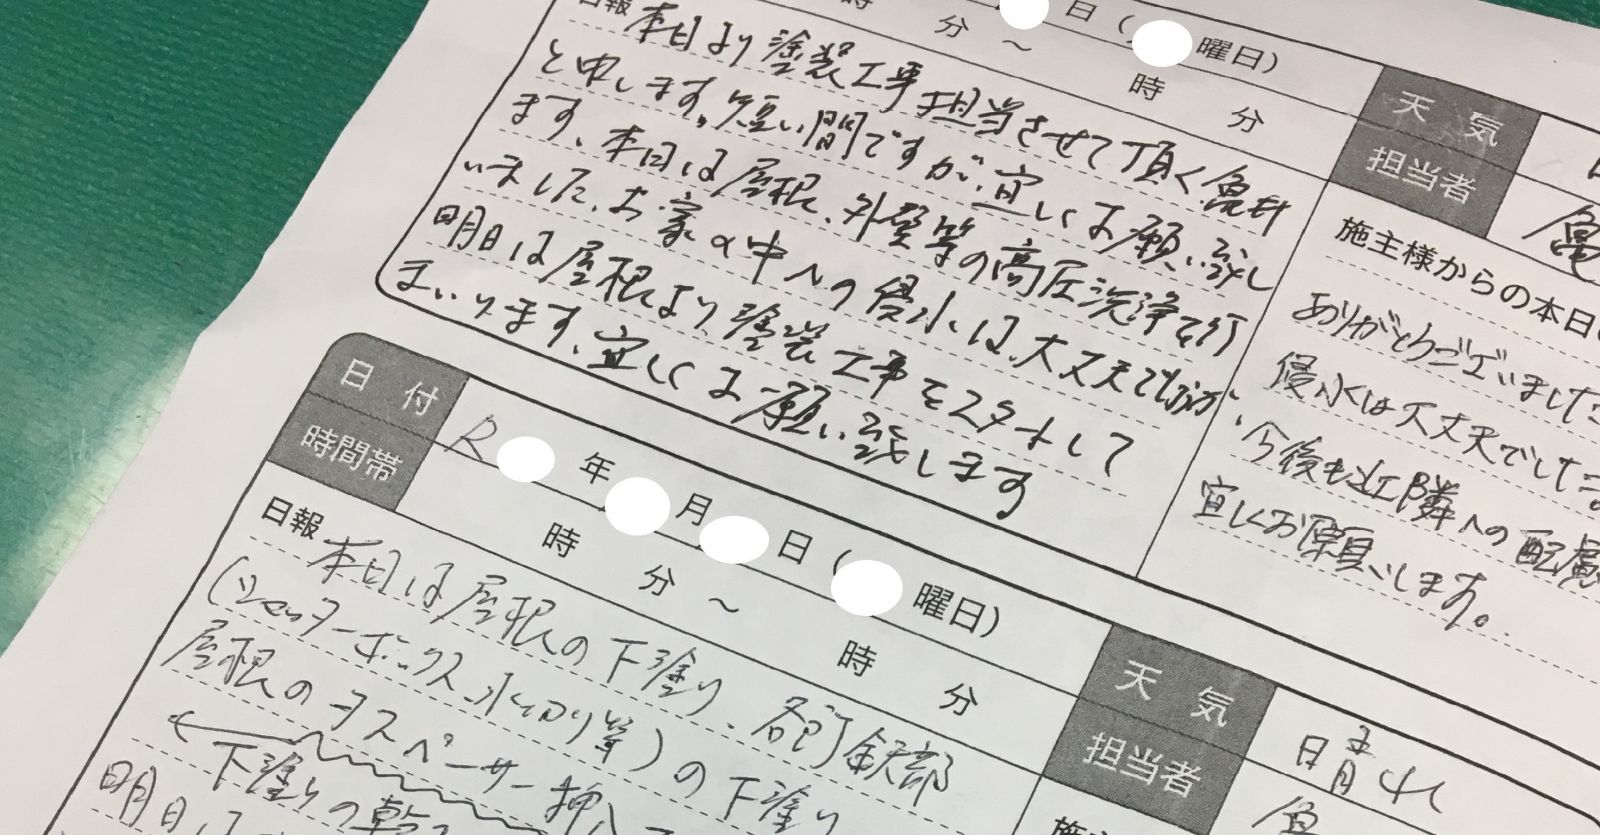 日(
曜日)
時
分 ～
時
分
天気
担当者
亀
日報 本日より塗装工事担当させて頂く亀井
と申します。短い間ですが、宜しくお願い致し
ます、本日は屋根、外壁等の高圧洗浄を行
いました、お家の中への侵水は大丈夫でしょうか、
明日は屋根より塗装工事をスタートして
まいります、宜しくお願い致します
施主様からの本日
ありがとうございました
侵水は大丈夫でした
今後も近隣への配慮
宜しくお願いします。
日付
R 年 月 日( 曜日)
時間帯
時 分 ～ 時 分
天気
晴れ
担当者
日報 本日は屋根の下塗り、各所鉄部
(シャッターボックス、水切り等)の下塗り
屋根のタスペーサー挿入
下塗りの乾
明日は
施